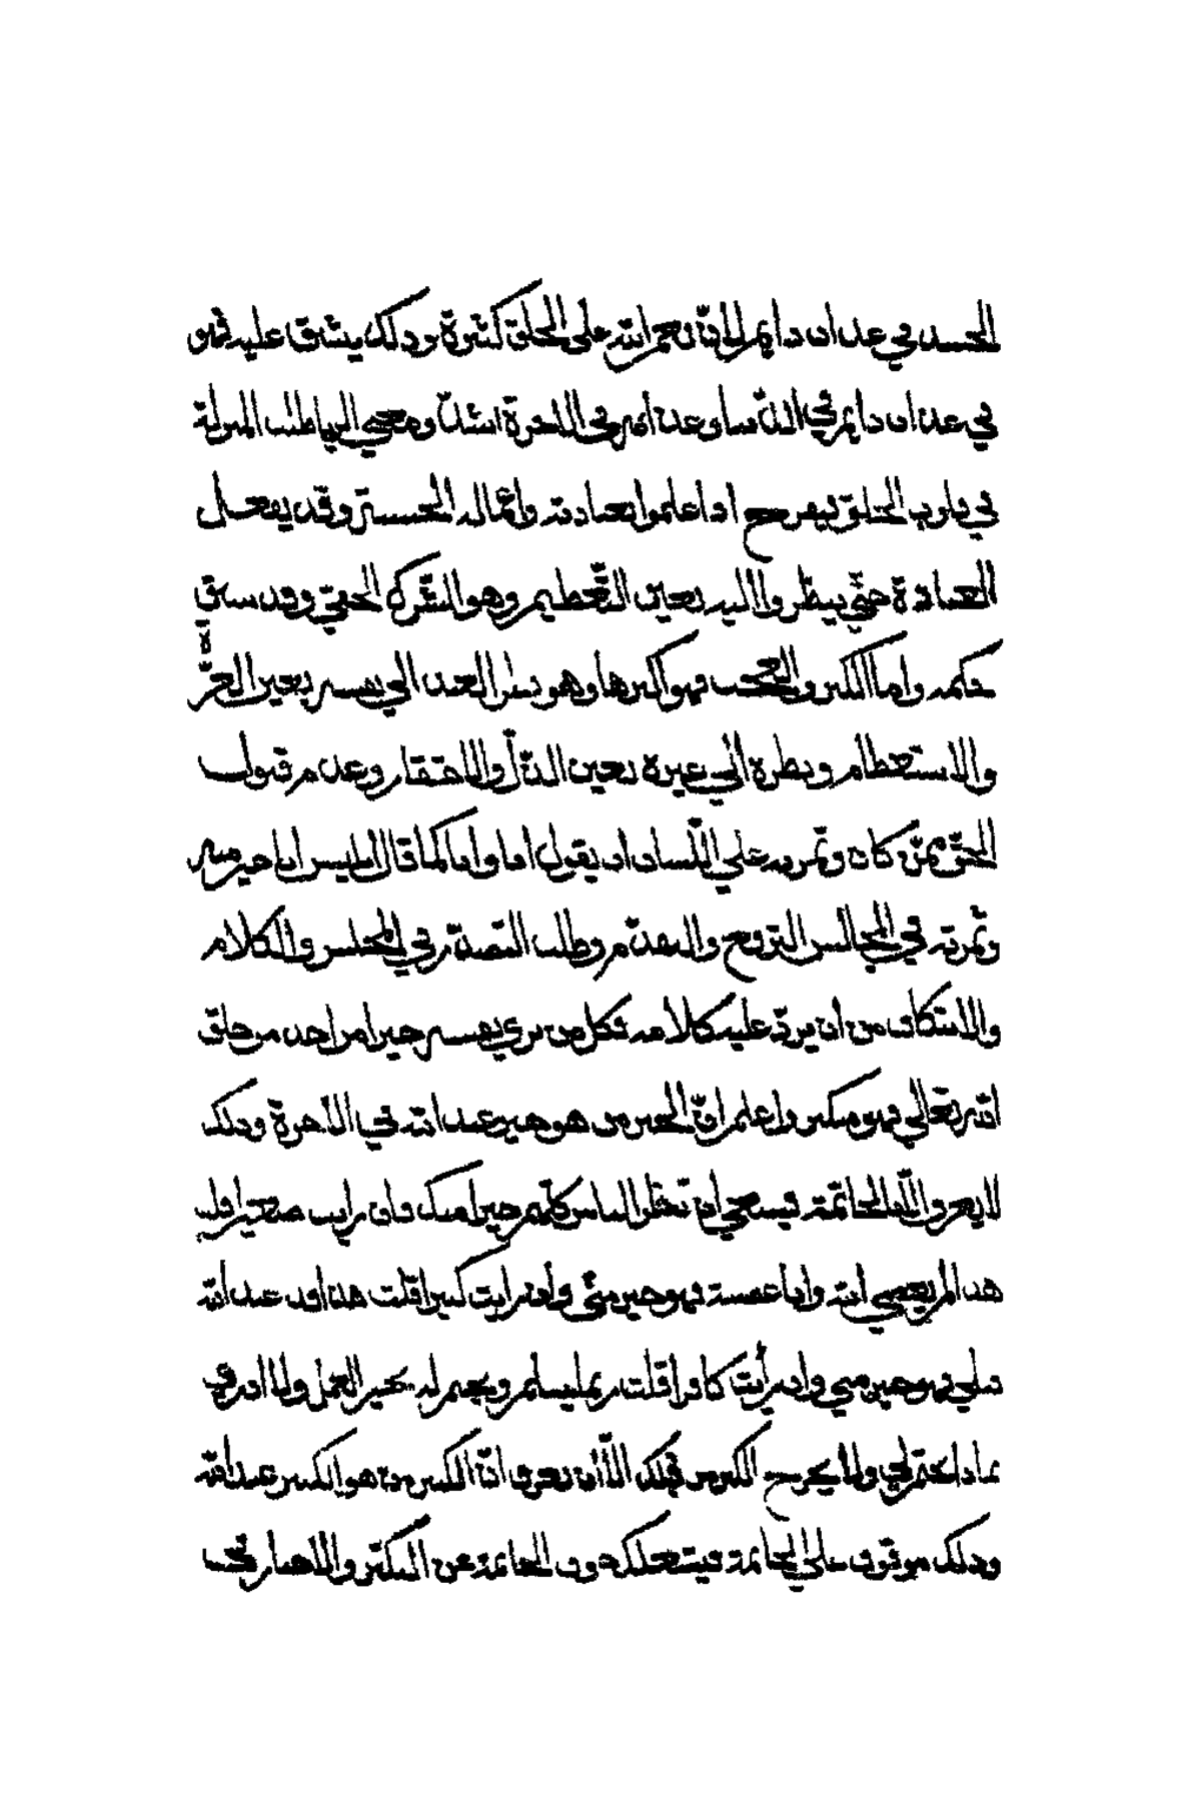 الحسد في عذاب دايم لانّ نعم الله على الخلق كثيرة وذلك يشق عليه فهو
في عذاب دايم في الدنيا وعذابه في الاخرة اشدّ ومعني الريا طلب المنزلة
في قلوب الخلق فيفرح اذا علموا بعبادته واعماله الحسنة وقد يفعل
العبادة حتّي ينظروا اليه بعين التّعظيم وهو الشّرك الخفيّ وقد سبق
حكمه واما الكبر والعجب فهو اكبرها وهو نظر العبد الي نفسه بعين العزّ
والاستعظام ونظره الي غيره بعين الذلّ والاحتقار وعدم قبول
الحقّ ممّن كان وثمرته علي اللّسان ان يقول انا وانا كما قال ابليس انا خير منه
وثمرته في المجالس الترفع والتقدّم وطلب التصدّر في المجلس والكلام
والاستنكاف من ان يردّ عليه كلامه فكل من يري نفسه خيرا من احد من خلق
الله تعالي فهو متكبر واعلم انّ الخير من هو خير عند الله في الاخرة وذلك
لا يعرف الّا بالخاتمة فينبغي ان تنظر الناس كلّهم خيرا منك فان رايت صغيرا قلت
هذا لم يعصي الله وانا عصيته فهو خير منّي وان رايت كبيرا قلت هذا قد عبد الله
قبلي فهو خير مني وان رأيت كافرا قلت ربما يسلم ويختم له بخير العمل وانا لا ادري
بماذا يختم لي ولا يخرج الكبر من قلبك الّا ان تعرف انّ الكبير من هو كبير عند الله
وذلك موقوف علي الخاتمة فيشغلك خوف الخاتمة عن التكبّر والافتخار تحت